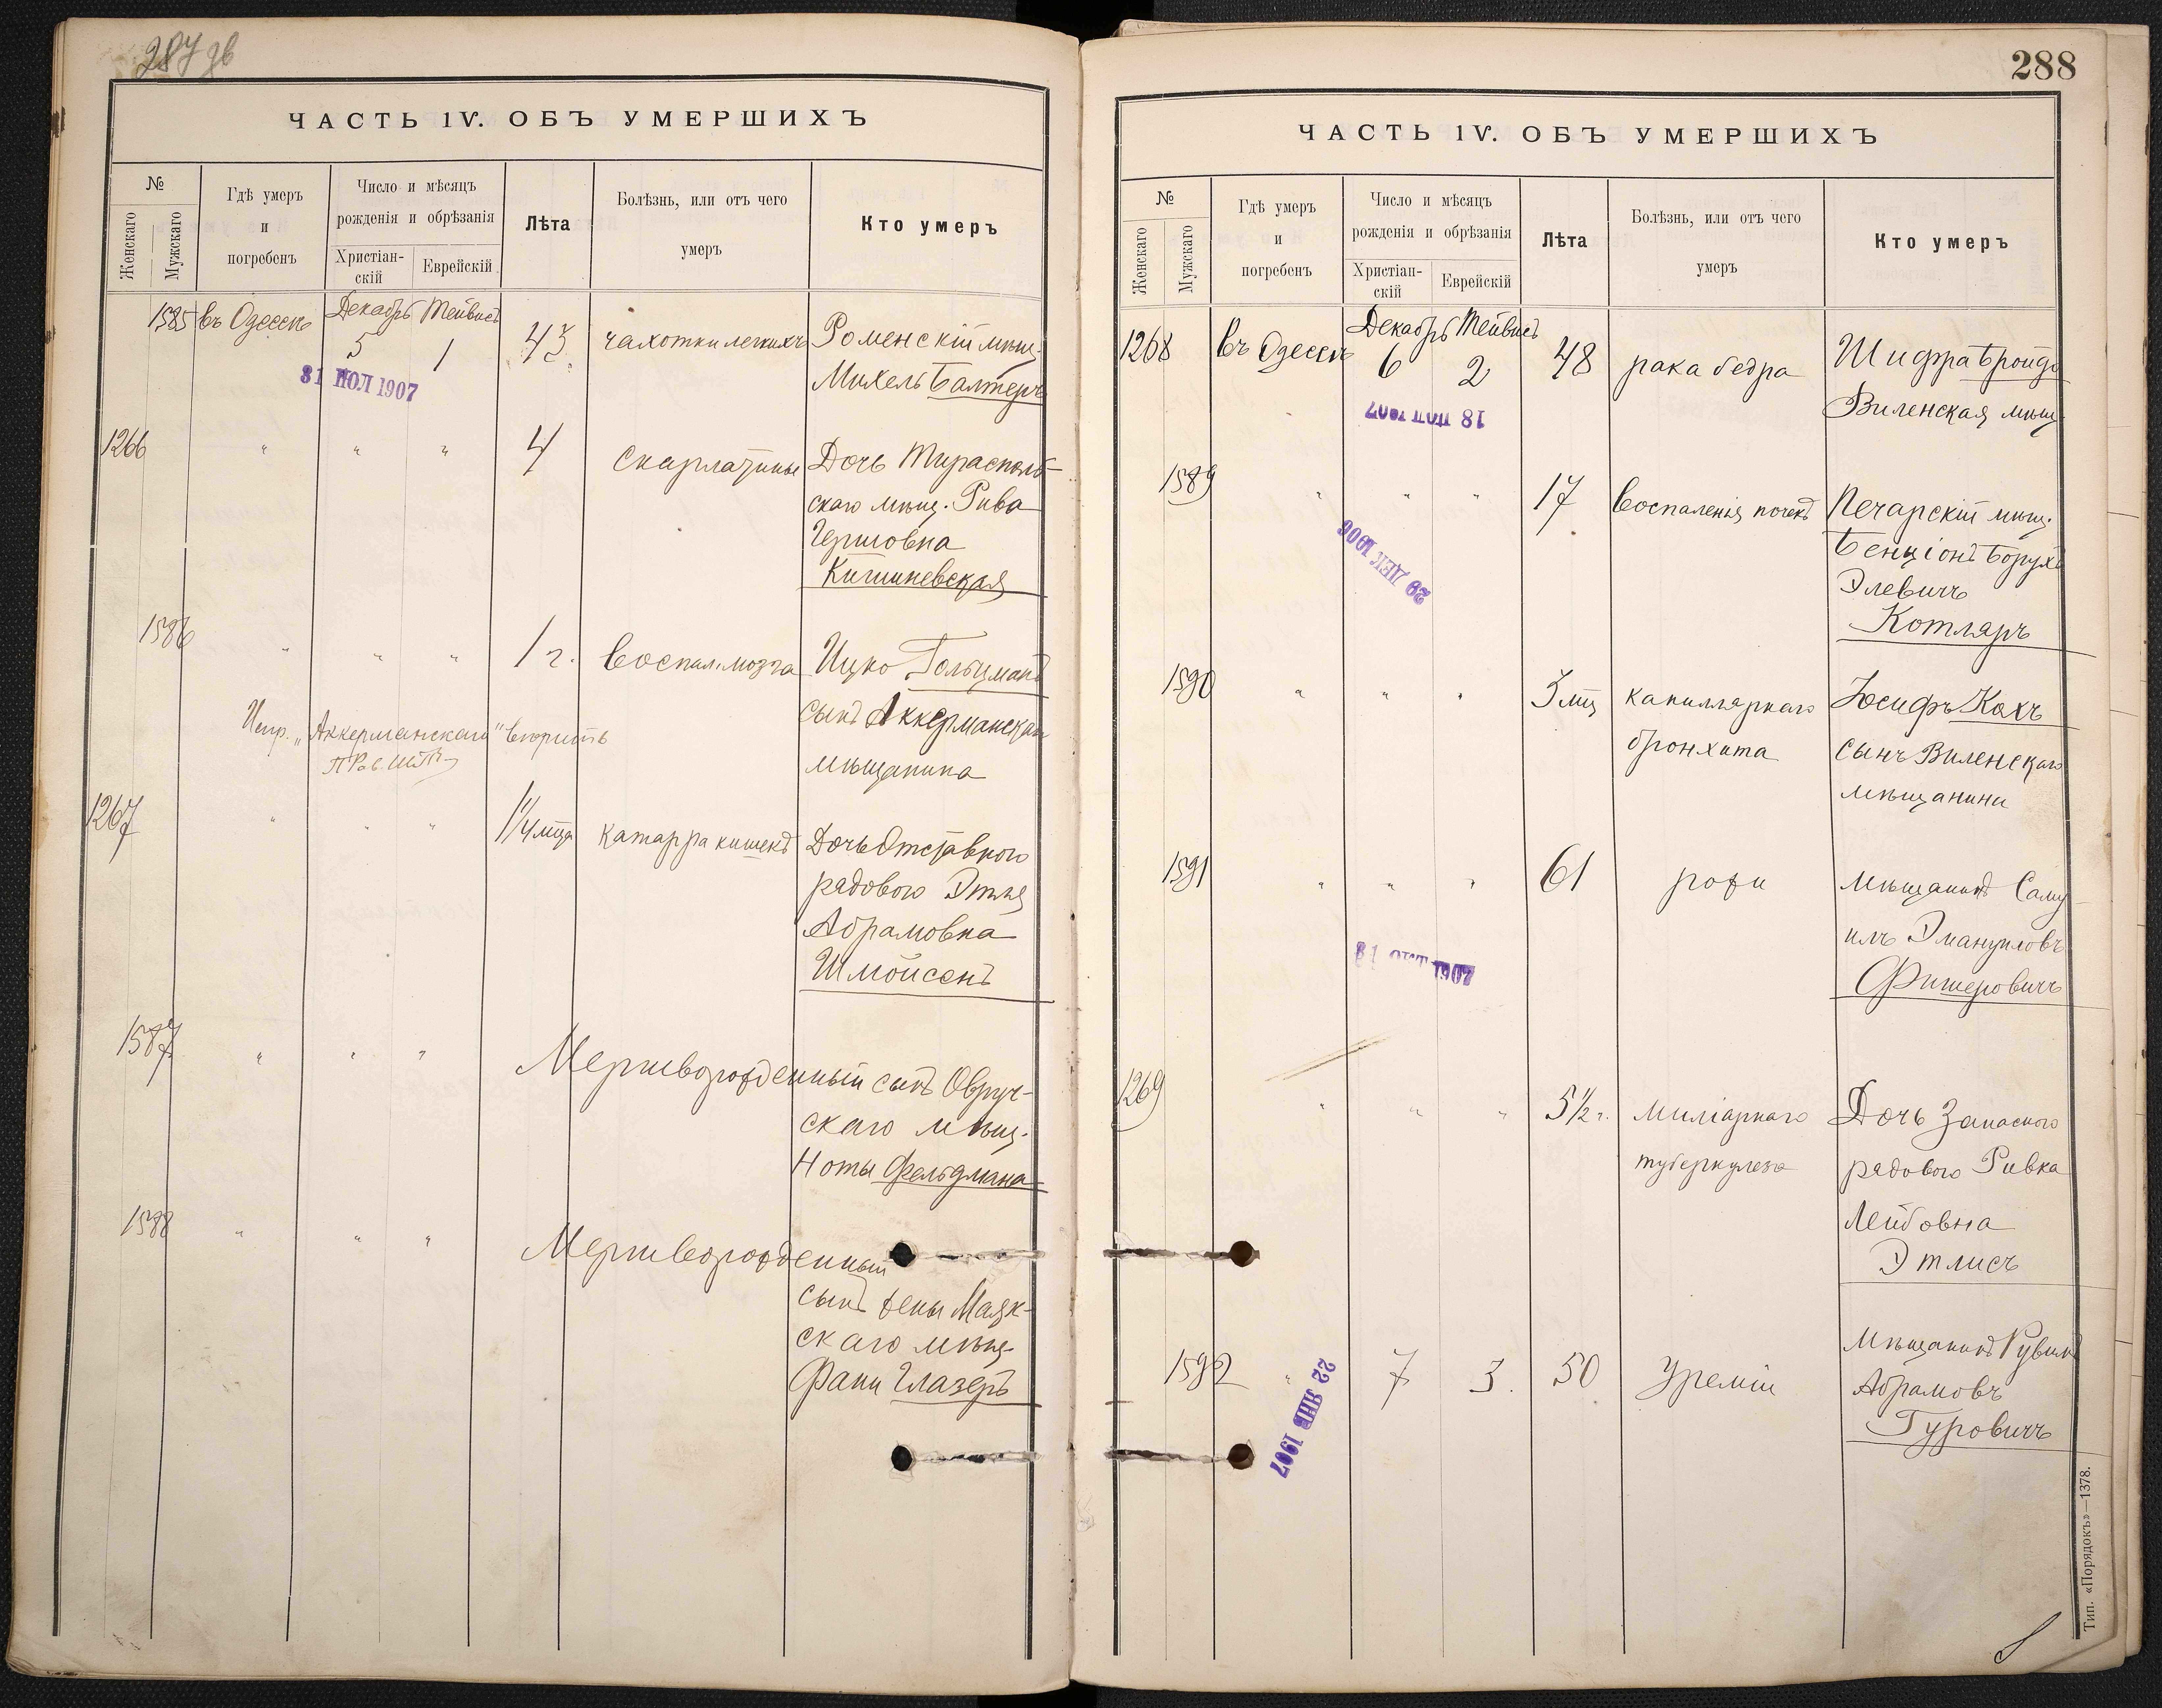 287 дв
ЧАСТЬ IV. ОБЪ УМЕРШИХЪ
№
Женскаго
Мужскаго
Гдѣ умеръ
и
погребенъ
Число и мѣсяцъ
рожденія и обрѣзанія
Христіан-
скій
Еврейскій
Лѣта
Болѣзнь, или отъ чего
умеръ
Кто умеръ
1585 въ Одессѣ Декабрь Тейвисъ
5 1 43 чахотки легкихъ Роменскій мѣщ.
31 ІЮЛ 1907
Михель Балтеръ
1266 " " " 4 скарлатины Дочь Тирасполь-
скаго мѣщ. Рива
Гершовна
Кишиневская
1586 " " " 1 г. воспал. мозга Ицко Гольцманъ
сынъ Аккерманскаго
мѣщанина
Испр. „Аккерманскаго" вѣрить
1267 " " " 1¼ мца катарра кишекъ Дочь Отставного
рядового Этля
Абрамовна
Шмойсенъ
1587 " " " Мертворожденный сынъ Овруч-
скаго мѣщ.
Ноты Фельдмана
1588 " " " Мертворожденный
сынъ жены Маяк-
скаго мѣщ.
Фани Глазеръ
288
ЧАСТЬ IV. ОБЪ УМЕРШИХЪ
№
Женскаго
Мужскаго
Гдѣ умеръ
и
погребенъ
Число и мѣсяцъ
рожденія и обрѣзанія
Христіан-
скій
Еврейскій
Лѣта
Болѣзнь, или отъ чего
умеръ
Кто умеръ
1268 въ Одессѣ Декабрь Тейвисъ
6 2 48 рака бедра Шифра Бройдо
Виленская мѣщ.
18 ІЮЛ 1907
1589 " " " 17 воспаленія почекъ Печарскій мѣщ.
Бенціонъ Борухъ
Элевичъ
Котляръ
29 ДЕК 1906
1590 " " " 3 мц капиллярнаго Юсифъ Кахъ
бронхита сынъ Виленскаго
мѣщанина
1591 " " " 61 рожи мѣщанинъ Саму
илъ Эмануиловъ
Фишеровичъ
31 ОКТ 1907
1269 " " " 5½ г. миліарнаго Дочь Запасного
туберкулеза рядового Ривка
Лейбовна
Этлисъ
1592 " 7 3. 50 Уреміи мѣщанинъ Рувинъ
Абрамовъ
Гуровичъ
22 ЯНВ 1907
Тип. «Порядокъ»—1378.